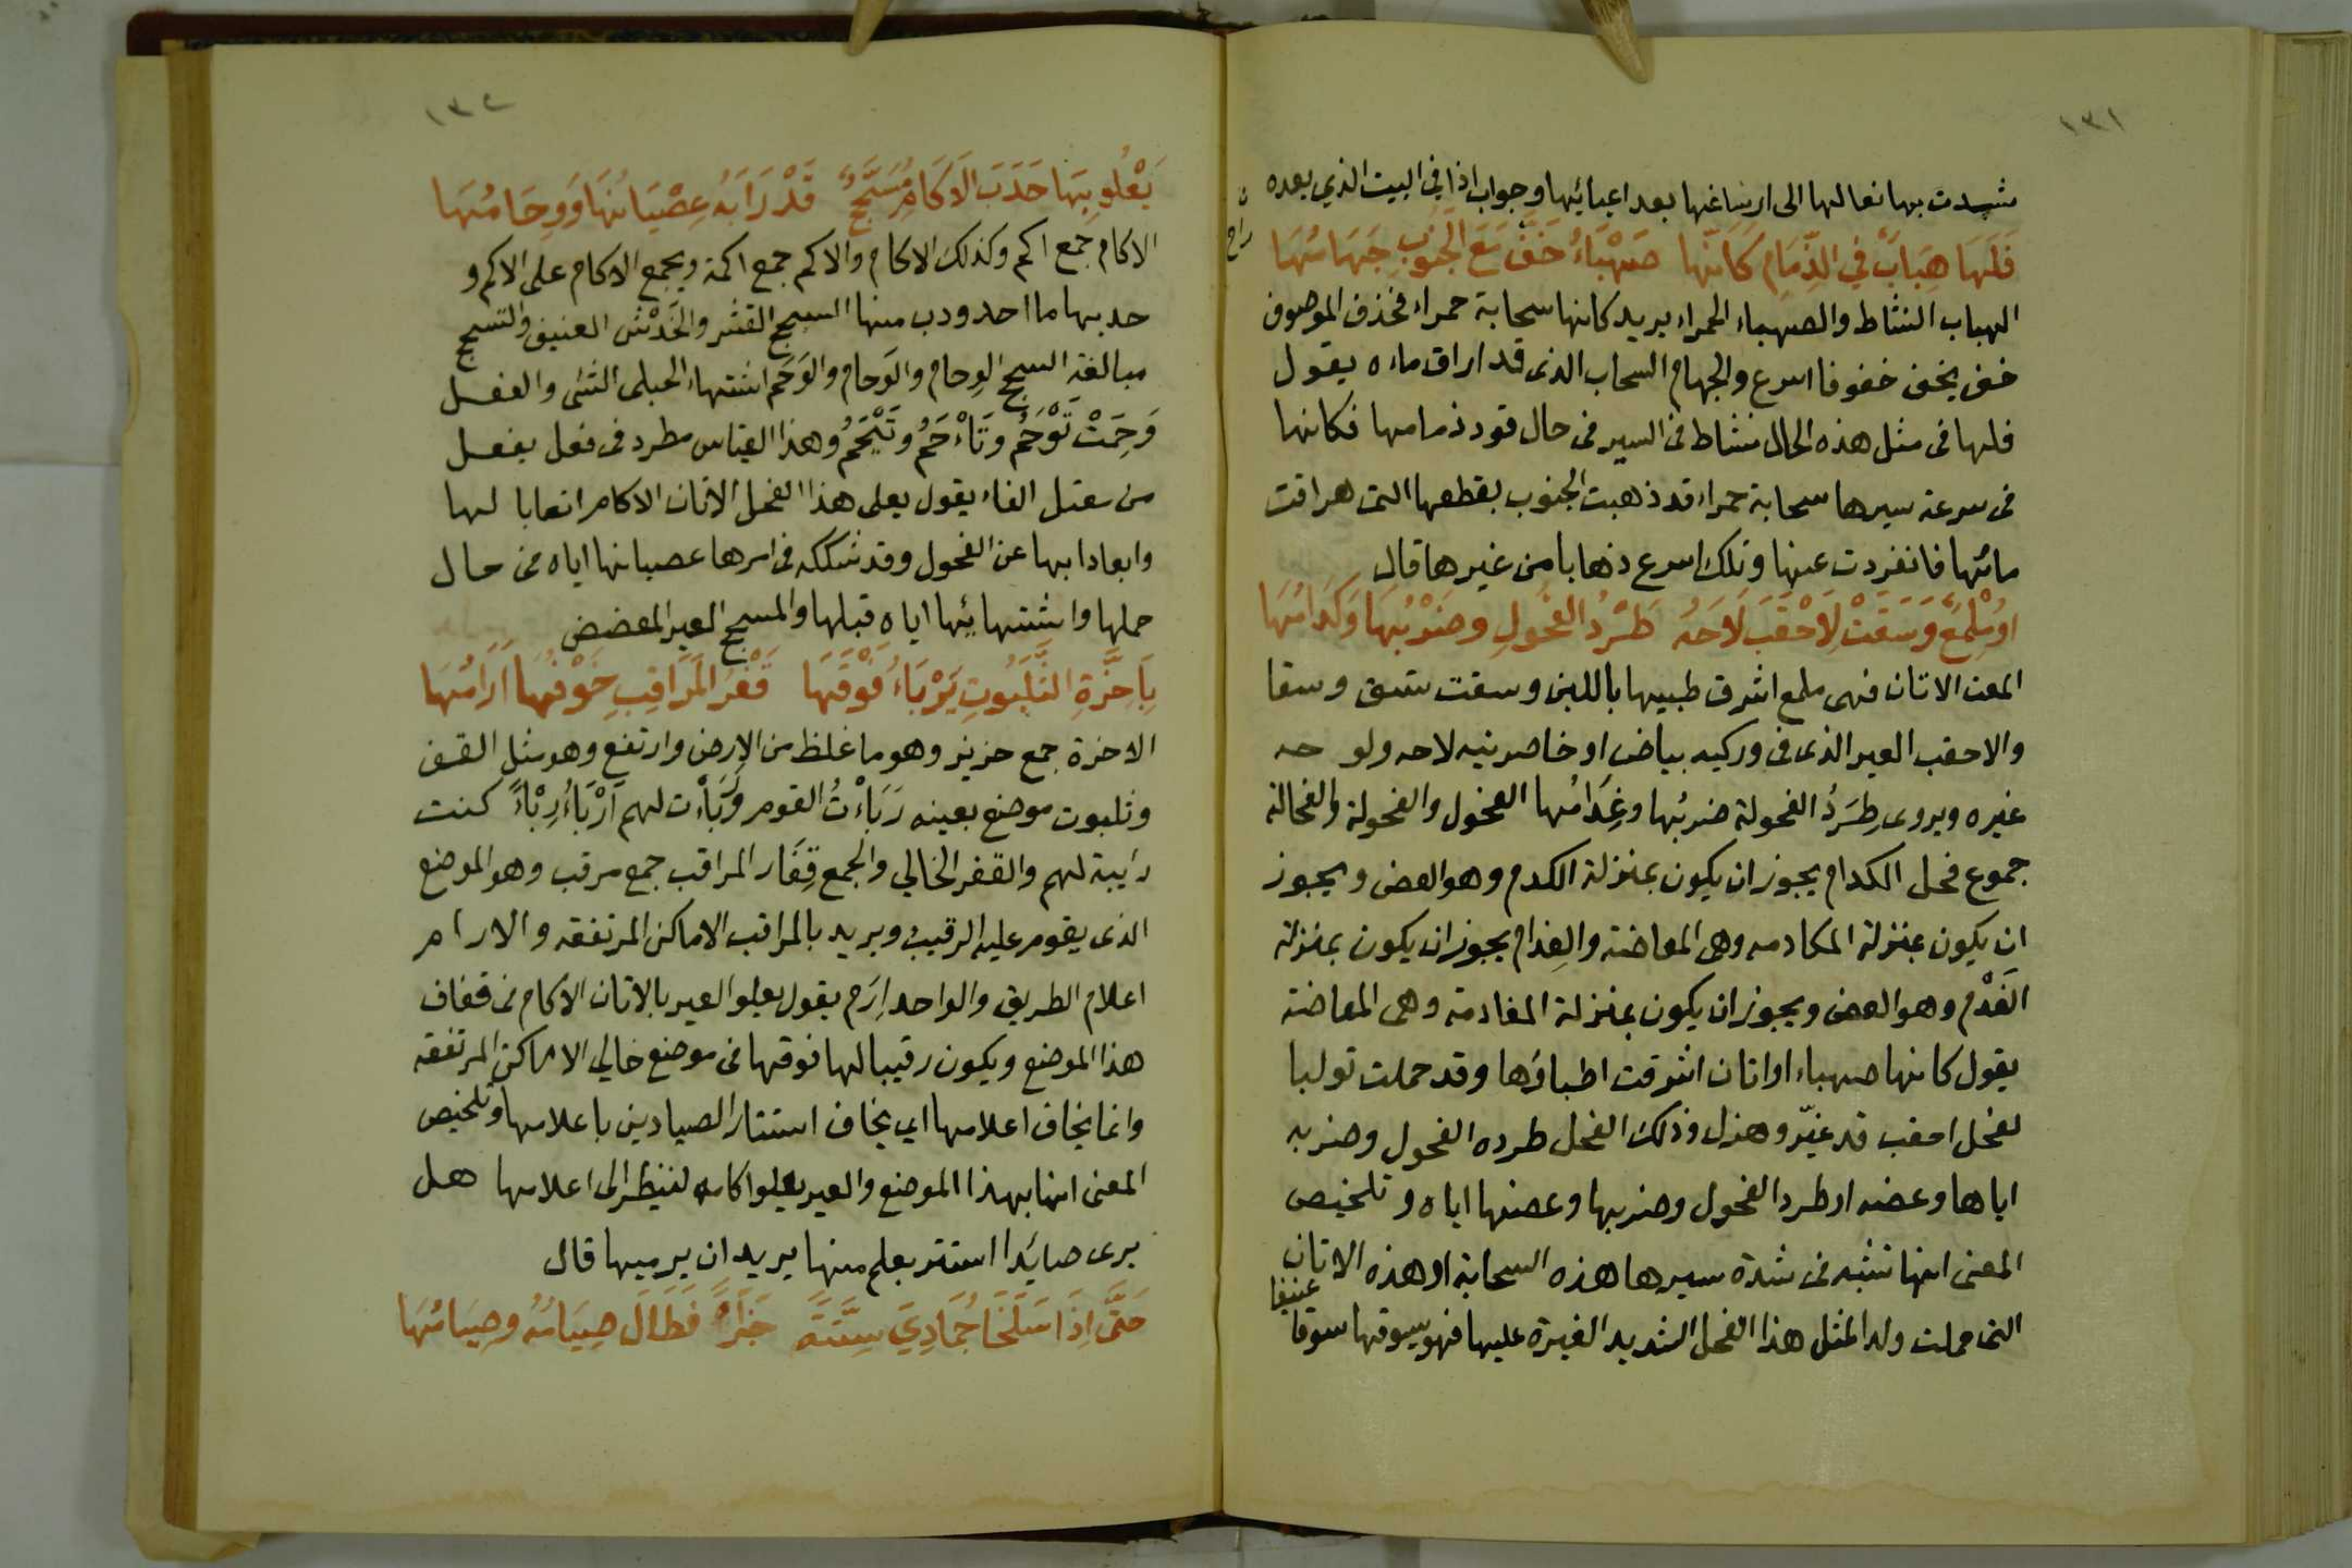 ١٣١
شدت بها نعالها الى ارساغها بعد اعيائها وجواب اذا في البيت الذي بعده
فَلَهَا هِبَابٌ فِي الزِّمَامِ كَاَنَّهَا صَهْبَاءُ خَفَّ مَعَ الجَنُوبِ جَهَامُهَا
الهباب النشاط والصهباء الحمراء يريد كانها سحابة حمراء فحذف الموصوف
خف يخف خفوفا اسرع والجهام السحاب الذى قد اراق ماءه يقول
فلها فى مثل هذه الحال نشاط فى السير فى حال قود زمامها فكانها
فى سرعة سيرها سحابة حمراء قد ذهبت الجنوب بقطعها التى هراقت
مائها فانفردت عنها وتلك اسرع ذهابا من غيرها قال
اوْ مُلْمِعٌ وَسَقَتْ لِاَحْقَبَ لَاحَهُ طَرْدُ الفُحُولِ وضَرْبُهَا وَكَدَامُهَا
المعت الاتان فهى ملمع اشرق طبيها باللبن وسقت تسق وسقا
والاحقب العير الذى فى وركيه بياض او خاصرتيه لاحه ولوحه
غيره ويروى طِرَدُ الفحولة ضربُها وعِذَامُها الفحول والفحولة والفحالة
جموع فحل الكدام يجوز ان يكون بمنزلة الكدم وهو العض ويجوز
ان يكون بمنزلة المكادمه وهى المعاضة والعِذام يجوز ان يكون بمنزلة
العَذْم وهو العض ويجوز ان يكون بمنزلة المعاذمة وهى المعاضة
يقول كانها صهباء او اتان اشرقت اطباؤها وقد حملت تولبا
لفحل احقب قد غيّر وهزل وذلك الفحل طرده الفحول وضربه
اياها وعضه او طرد الفحول وضربها وعضها اياه وتلخيص
المعنى انها تشبه فى شدة سيرها هذه السحابة او هذه الاتان
التى حملت ولدا لمثل هذا الفحل الشديد الغيرة عليها فهو يسوقها سوقا
عنيفا
١٣٢
يَعْلُو بِهَا حَدَبَ الْاَكَامِ مُسَحَّجٌ قَدْ رَابَهُ عِصْيَانُهَا وَوِحَامُهَا
الاكام جمع اكم وكذلك الاكام والاكم جمع اكمة ويجمع الاكام على الاكم و
حدبها ما احدودب منها السحج القشر والخَدْش العنيف والتسحج
مبالغة السحج الوِحام والوَحام والوَحَم اشتهاء الحبلى الشئ والفعل
وَحِمَتْ تَوْحَمُ وتَاْحَمُ وتَيْحَمُ وهذا القياس مطرد فى فعل يفعل
من معتل الفاء يقول يعلى هذا الفحل الاتان الاكام اتعابا لها
وابعادا بها عن الفحول وقد شككه فى امرها عصيانها اياه فى حال
حملها واشتهائها اياه قبلها والمسحج العير المعضض
بِاَحِزَّةِ الثَّلَبُوتِ يَرْبَاءُ فَوْقَهَا قَفْرَ المَرَاقِبِ خَوْفُهَا اَرَامُهَا
الاحزة جمع حزيز وهو ما غلظ من الارض وارتفع وهو مثل القف
وثلبوت موضع بعينه رَبَاْتُ القوم ورَبَاْت لهم اَرْبَاُ رِبْاً كنت
رايبة لهم والقفر الخالي والجمع قِفَار المراقب جمع مرقب وهو الموضع
الذى يقوم عليه الرقيب ويريد بالمراقب الاماكن المرتفقه والارام
اعلام الطريق والواحد اِرَم يقول يعلو العير بالاتان الاكام فى قفاف
هذا الموضع ويكون رقيبا لها فوقها فى موضع خالي الاماكن المرتفقه
وانما يخاف اعلامها اي يخاف استتار الصيادين باعلامها وتلخيص
المعنى انها بهذا الموضع والعير يعلوا كامه لينظر الى اعلامها هل
يرى صائدا استتر بعلم منها يريد ان يرميها قال
حَتَّى اِذَا سَلَخَا جُمَادِيَ سِتَّةً جَزَاً فَطَالَ صِيَامُهُ وصِيَامُهَا